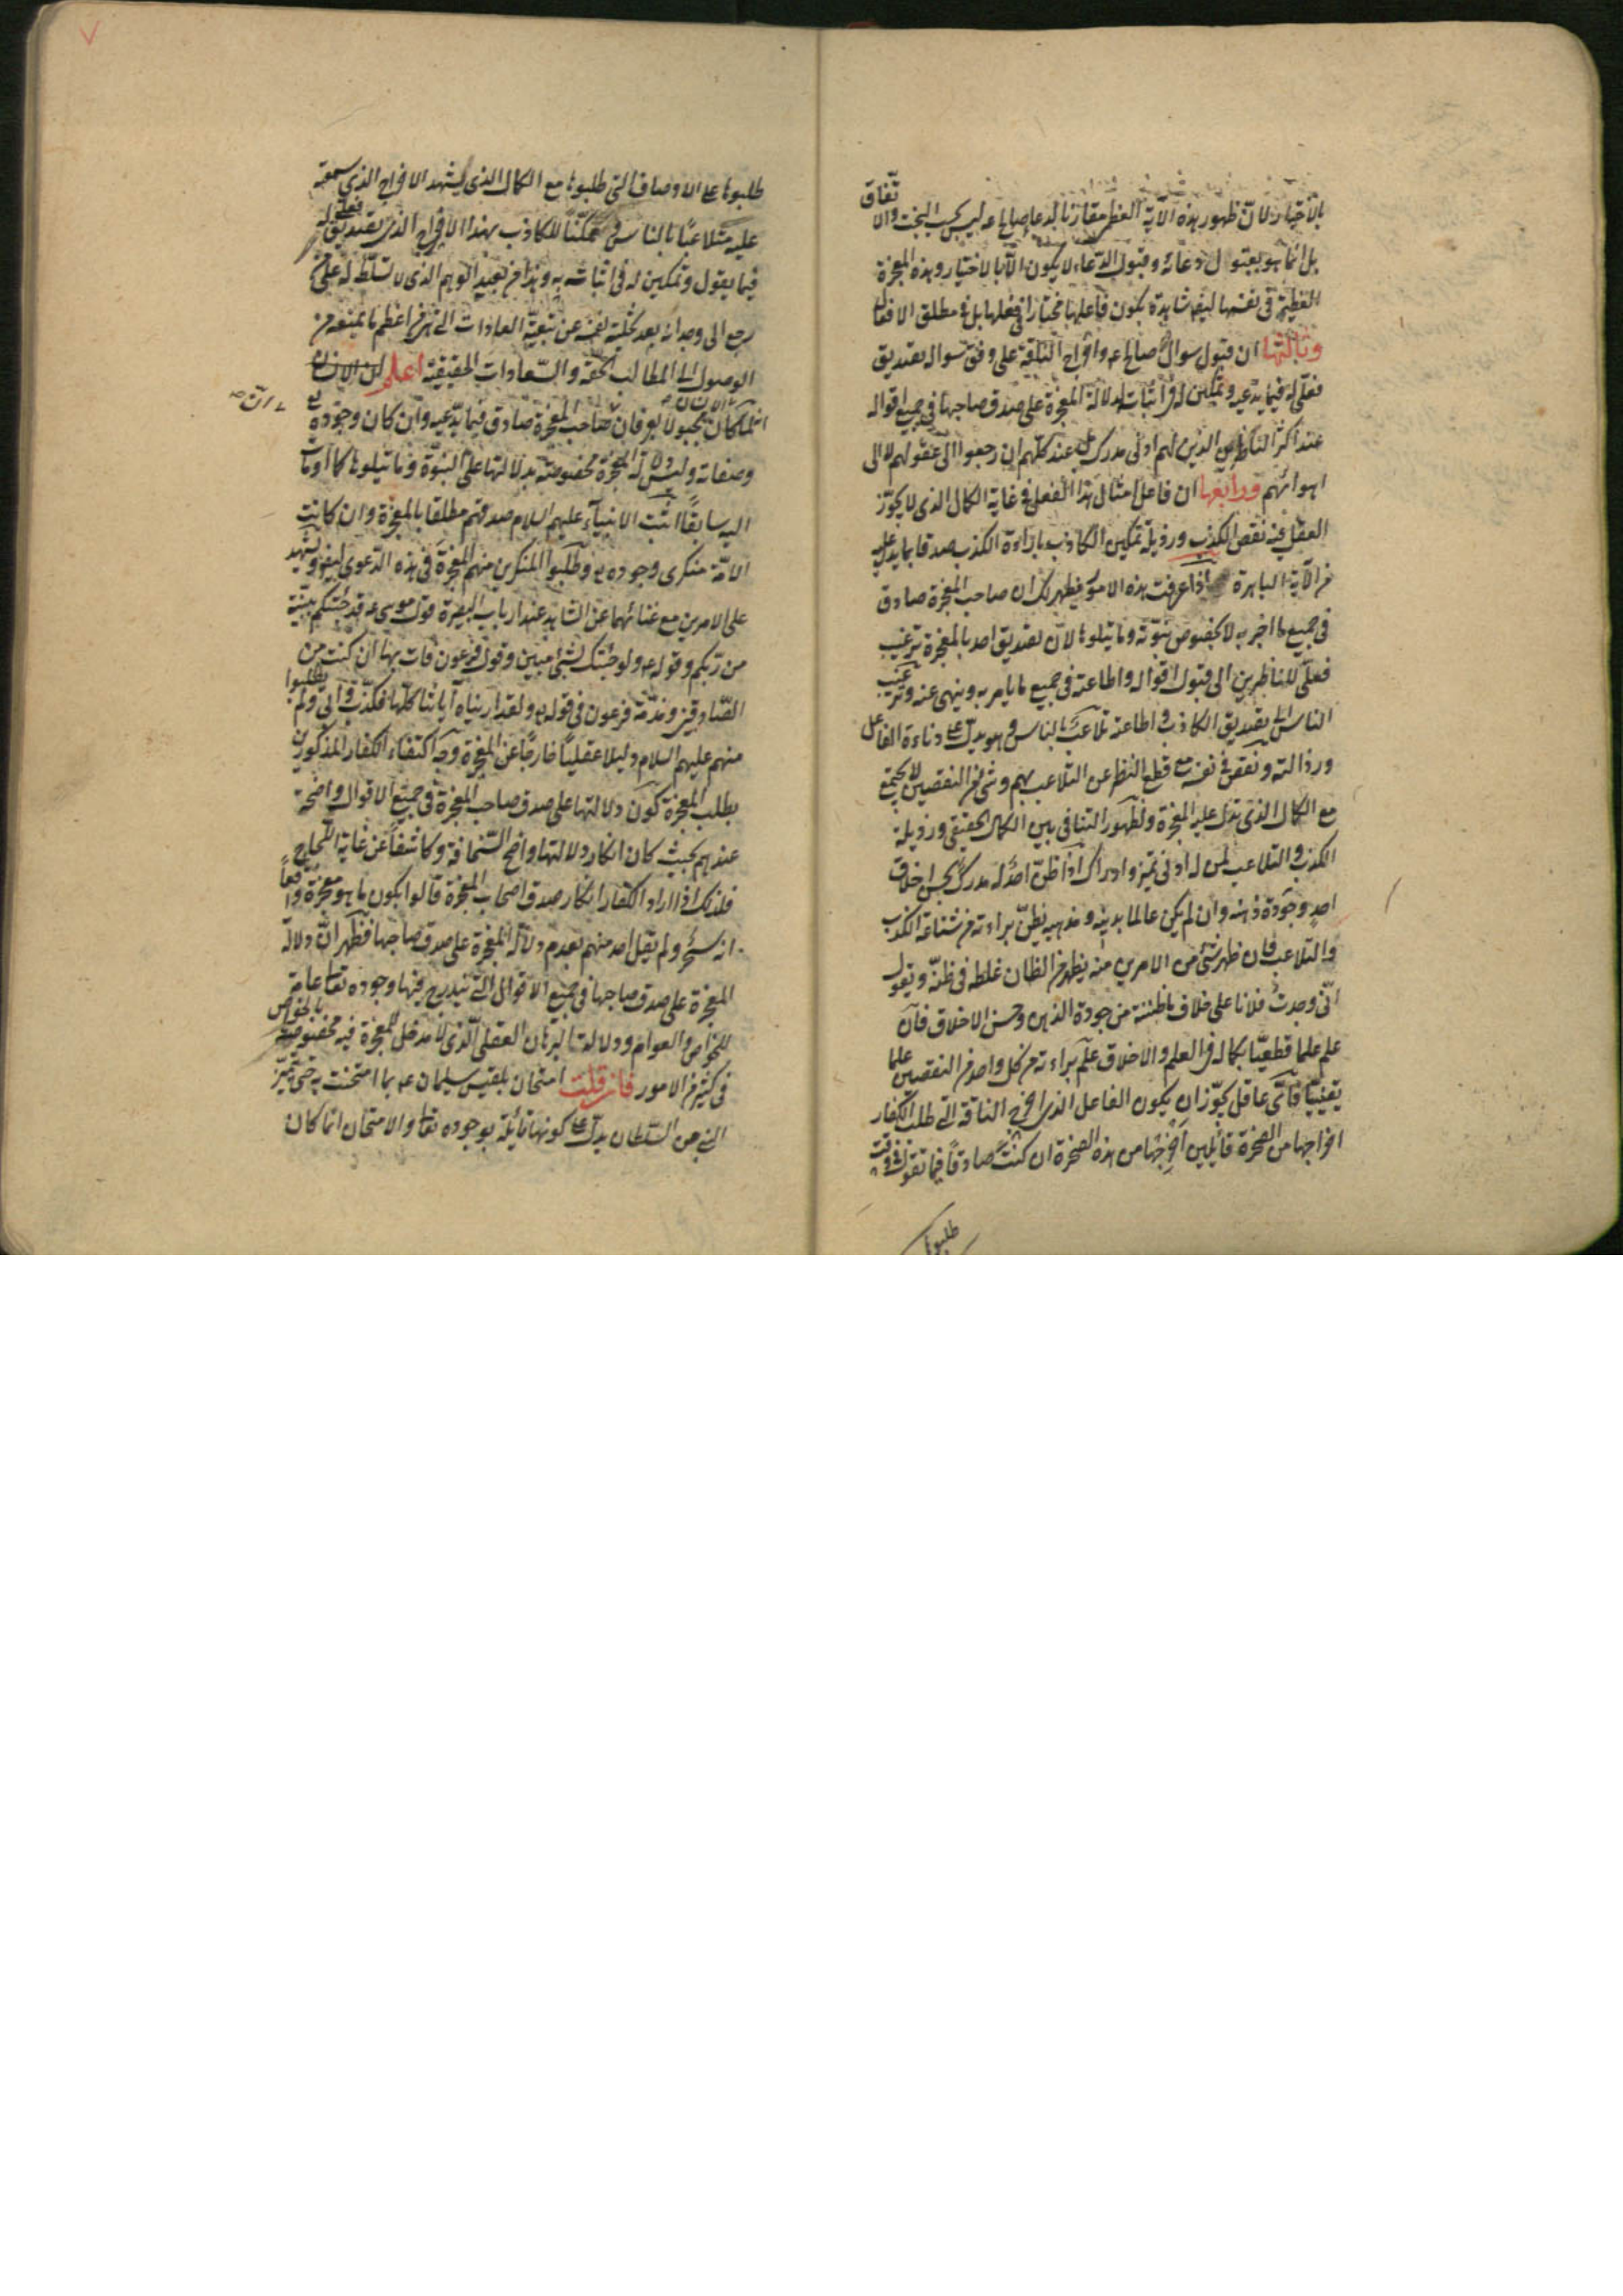 بالاختيار لان ظهور هذه الآية العظمى مقارنا لدعاء صالح ع ليس بحسب البخت والاتفاق
بل انما هو بقبول دعائه وقبول الدعاء لا يكون الا بالاختيار وهذه المعجزة
العظيمة في نفسها ايضا شاهدة بكون فاعلها مختارا في فعلها بل في مطلق الافعال
وثالثها ان قبول سوال صالح ع واخراج الناقة على وفق سواله تصديق
فعلي له فيما يدعيه وتمكين له في اثبات دلالة المعجزة على صدق صاحبها في جميع اقواله
عند اكثر الناظرين الذين لهم ادنى مدرك بل عند كلهم ان رجعوا الى عقولهم لا الى
اهوائهم ورابعها ان فاعل امثال هذا الفعل في غاية الكمال الذي لا يجوز
العقل فيه نقص الكذب ورذيلة تمكين الكاذب باراءة الكذب صدقا بما يدل عليه
من الآية الباهرة اذا عرفت هذه الامور فيظهر لك ان صاحب المعجزة صادق
في جميع ما اخبر به لا بخصوص نبوته وما يتلوها لان تصديق احد بالمعجزة ترغيب
فعلي للناظرين الى قبول اقواله واطاعته في جميع ما يامر به وينهى عنه وترغيب
الناس الى تصديق الكاذب واطاعته تلاعب بالناس وهو يدل على دناءة الفاعل
ورذالته ونقص في نفسه مع قطع النظر عن التلاعب بهم وشيء من النقصين لا يجتمع
مع الكمال الذي تدل عليه المعجزة ولظهور التنافي بين الكمال الحقيقي ورذيلة
الكذب والتلاعب لمن له ادنى تميز وادراك اذا ظن احد له مدرك بحسن اخلاق
احد وجودة ذهنه وان لم يكن عالما بدينه ومذهبه يظن براءته من شناعة الكذب
والتلاعب فان ظهر شيء من الامرين منه يظهر الظان غلطه في ظنه ويقول
اني وجدت فلانا على خلاف ما ظننته من جودة الذهن وحسن الاخلاق فان
علم علما قطعيا بكماله في العلم والاخلاق علم براءته من كل واحد من النقصين علما
يقينيا فاي عاقل يجوز ان يكون الفاعل الذي اخرج الناقة التي طلب الكفار
اخراجها من الصخرة قائلين اخرجها من هذه الصخرة ان كنت صادقا فيما تقول في وقت
طلبوها
طلبوها على الاوصاف التي طلبوها مع الكمال الذي يشهد الاخراج الذي سمعته
عليه متلاعبا بالناس وممكنا للكاذب بهذا الاخراج الذي تصديق فعلي له
فيما يقول وتمكين له في اثباته به وهذا من بعيد الوهم الذي لا تسلط له على من
رجع الى وجدانه بعد تخلية نفسه عن تبعية العادات التي هي من اعظم ما يمنعه من
الوصول الى المطالب الحقة والسعادات الحقيقية اعلم ان الانسان
لما كان مجبولا بعرفان صاحب المعجزة صادق فيما يدعيه وان كان وجوده تع
وصفاته وليس للمعجزة مخصوصية بدلالتها على النبوة وما يتلوها كما اومأت
اليه سابقا اثبت الانبياء عليهم السلام صدقهم مطلقا بالمعجزة وان كانت
الامة منكرى وجوده تع وطلبوا المنكرين منهم المعجزة في هذه الدعوى ايضا ويشهد
على الامرين مع غنائهما عن الشاهد عند ارباب البصيرة قول موسى ع قد جئتكم ببينة
من ربكم وقوله ع اولو جئتك بشئ مبين وقول فرعون فات بها ان كنت من
الصادقين ومذمة فرعون في قوله تع ولقد اريناه آياتنا كلها فكذب وابى ولم يطلبوا
منهم عليهم السلام دليلا عقليا خارجا عن المعجزة وجه اكتفاء الكفار المذكورين
بطلب المعجزة كون دلالتها على صدق صاحب المعجزة في جميع الاقوال واضحة
عندهم بحيث كان انكار دلالتها واضح السخافة وكاشفا عن غاية اللجاج
فلذلك اذا اراد الكفار انكار صدق اصحاب المعجزة قالوا بكون ما هو معجزة واقعا
انه سحر ولم يقل احد منهم بعدم دلالة المعجزة على صدق صاحبها فظهر ان دلالة
المعجزة على صدق صاحبها في جميع الاقوال التي يندرج فيها وجوده تعالى عامة
للخواص والعوام ودلالة البرهان العقلي الذي لا مدخل للمعجزة فيه مخصوصة بالخواص
في كثير من الامور فان قلت امتحان بلقيس سليمان ع بما امتحنت به حتى تميز
النبي من السلطان يدل على كونها قائلة بوجوده تعالى والامتحان انما كان